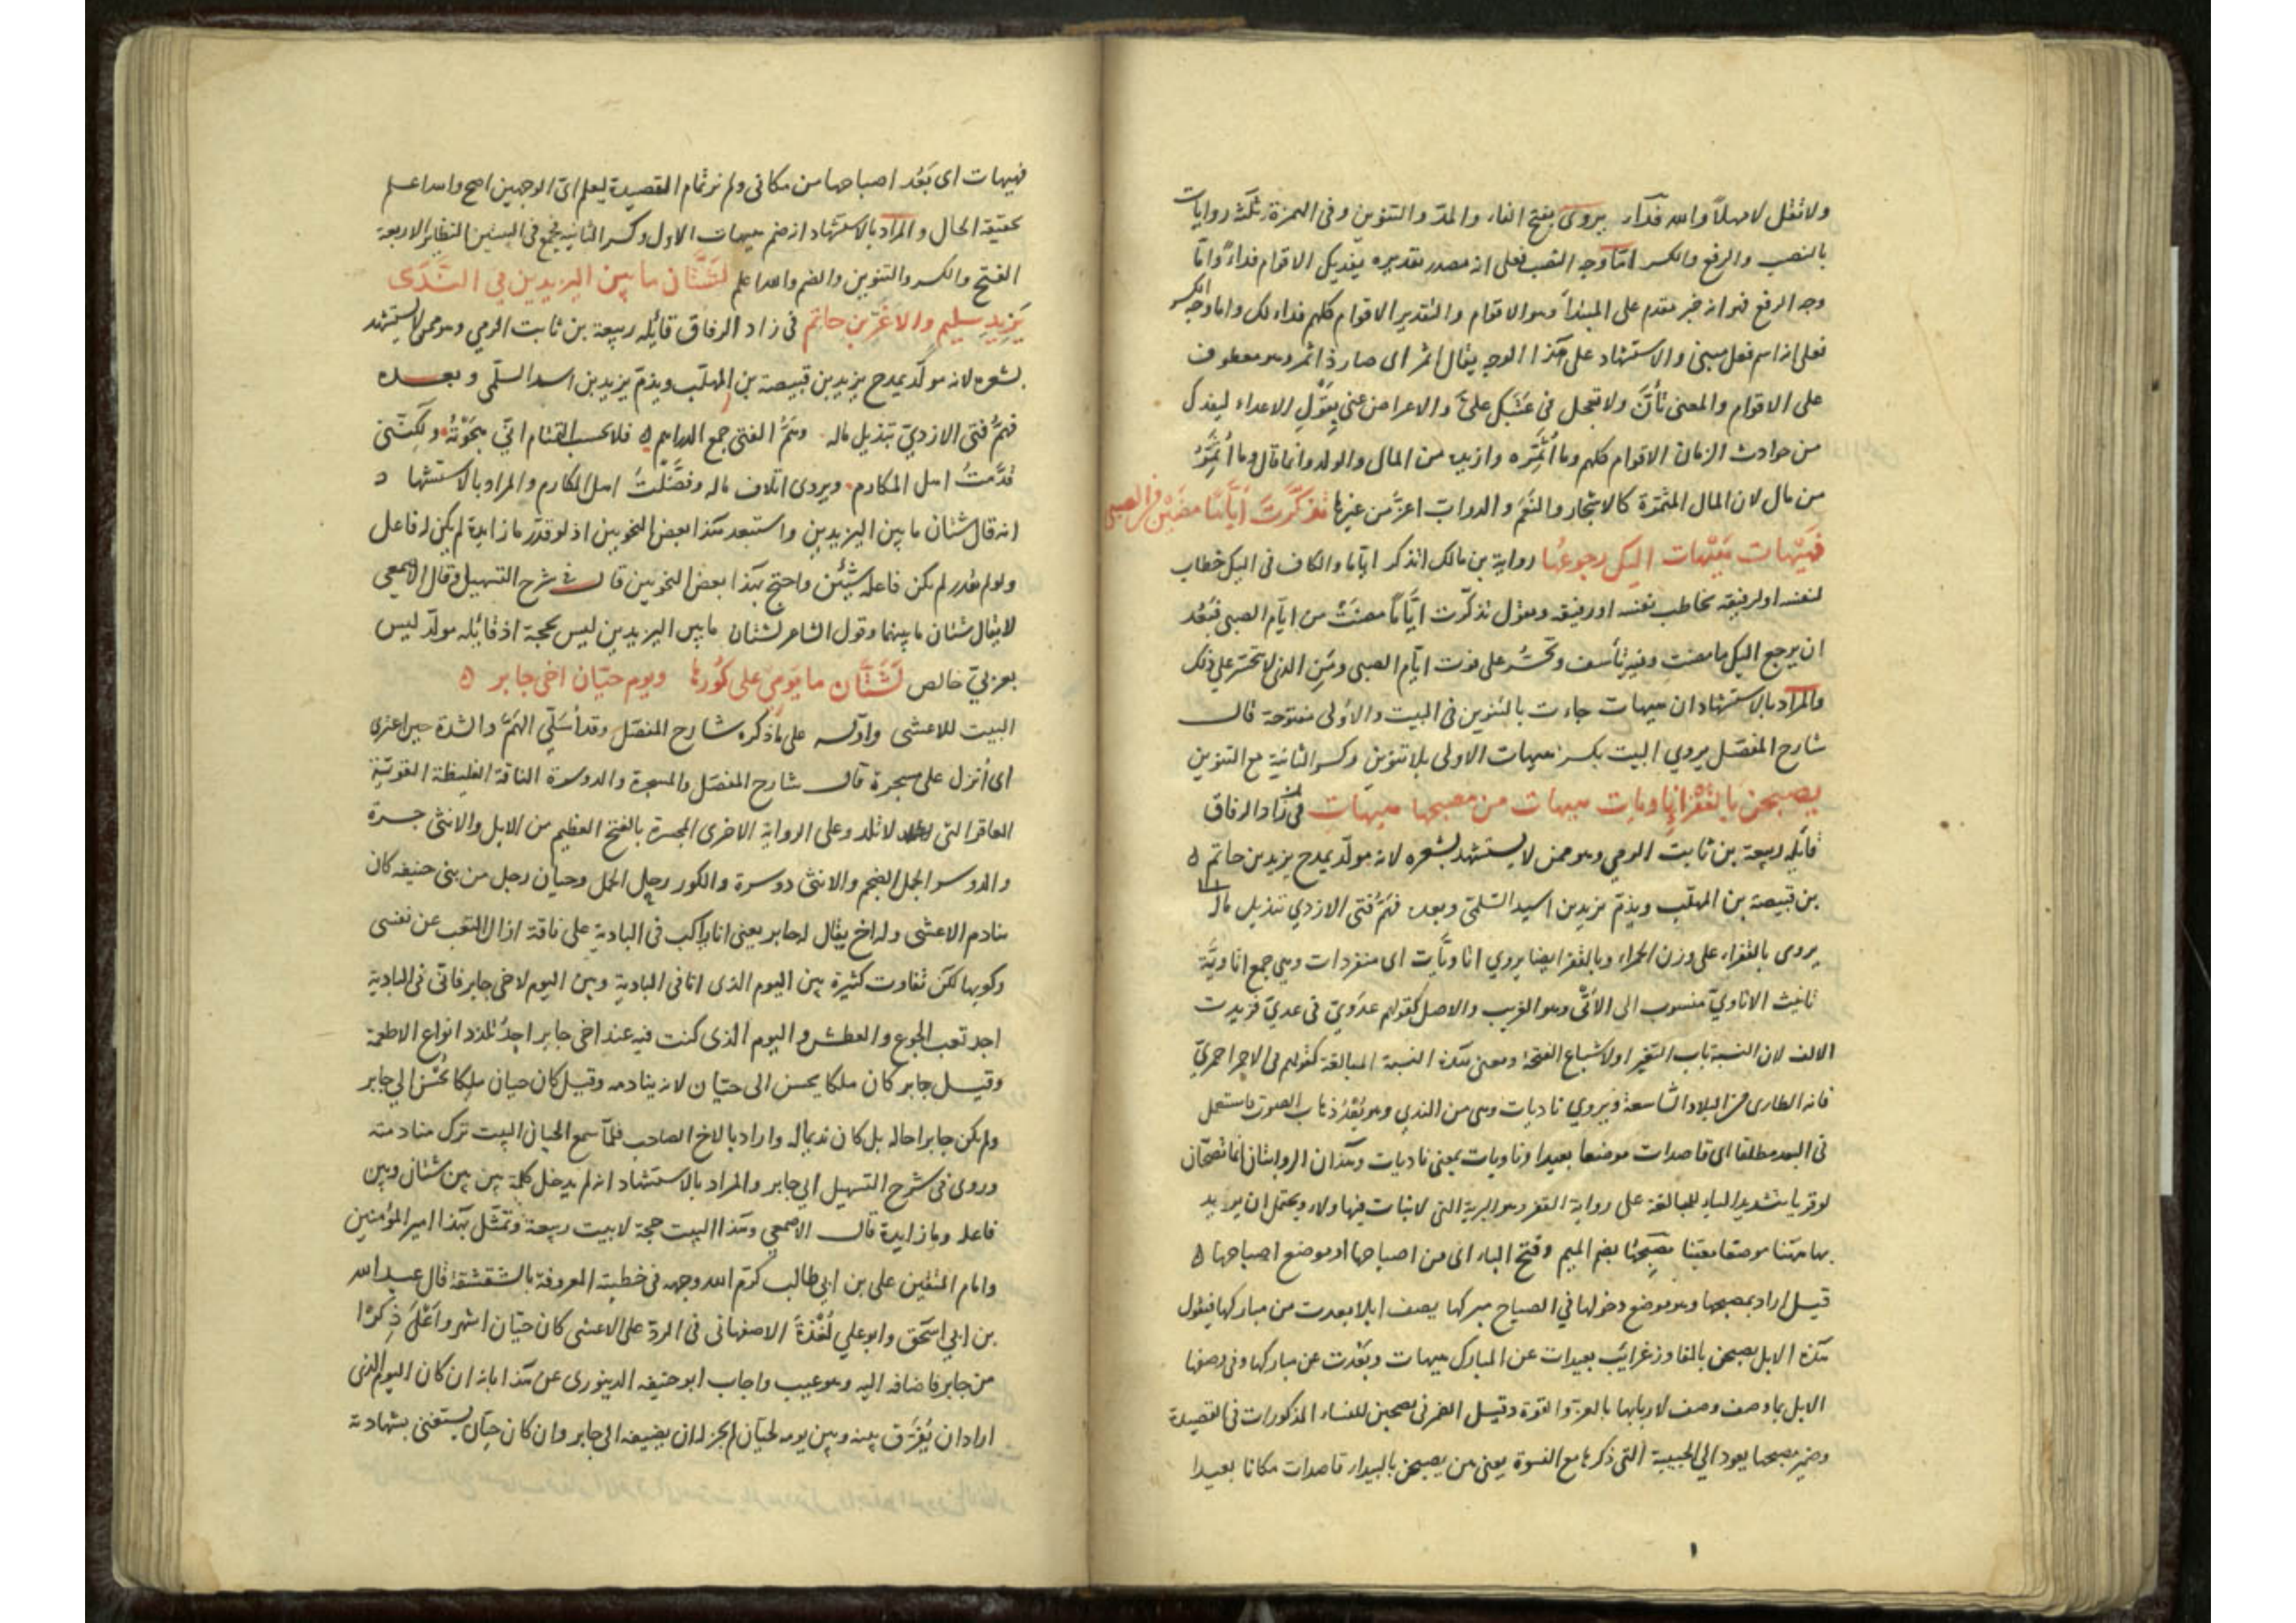 ولا تقل لا مهلا والله فداء يروى بفتح الفاء والمد والتنوين وفى الهمزة ثلث روايات
بالنصب والرفع والكسر امّا وجه النصب فعلى انه مصدر تقديره يفديك الاقوام فداءً وامّا
وجه الرفع فهو انه خبر مقدم على المبتدأ وهو الاقوام والتقدير الاقوام كلهم فداء لك واما وجه الكسر
فعلى انه اسم فعل مبنى والاستشهاد على هذا الوجه يقال اثمر اى صار ذا ثمر وهو معطوف
على الاقوام والمعنى تأنّ ولا تعجل فى علىّ والاعراض عنى بقول الاعداء ليفدك
من حوادث الزمان الاقوام كلهم وما أثمّره وازيد من المال والولد وانما قال وما أثمّر
من مال لان المال المثمرة كالاشجار والنعم والدواب اعزّ من غيرها تذكّرت ايّامًا مضين من الصبى
فهيهات هيهات اليك رجوعها رواية بن مالك اتذكر اياما والكاف فى اليك خطاب
لنفسه او لرفيقه يخاطب نفسه او رفيقه ويقول تذكّرت ايّامًا مضت من ايّام الصبى فبعُد
ان يرجع اليك ما مضت وفيه تأسف وتحسّر على فوت ايّام الصبى ومَن الذى لا يتحسّر على ذلك
والمراد بالاستشهاد ان هيهات جاءت بالتنوين فى البيت والاولى مفتوحة قال
شارح المفصّل يروى البيت بكسر هيهات الاولى بلا تنوين وكسر الثانية مع التنوين
يصبحن بالقفر اتاويات هيهات من مصبحها هيهات فى زاد الرفاق
قائله ربيعة بن ثابت الرمي وهو ممن لا يستشهد بشعره لانه مولّد يمدح يزيد بن حاتم
بن قبيصة بن المهلّب ويذمّ يزيد بن اسيد السّلمىّ وبعده فهمّ فتى الازديّ تبذيل ماله
يروى بالقفراء على وزن الحمراء وبالقفر ايضا يروي اتاويّات اى منفردات وهي جمع اتاويّة
تانيث الاتاويّ منسوب الى الأتىّ وهو الغريب والاصل كقولهم عدَويّ فى عديّ فزيدت
الالف لان النسبة باب التغير او لاشباع الفتحة ومعنى هذه النسبة المبالغة كقولهم فى الاحمر احمريّ
فانه الطارى من البلاد الشاسعة ويروي ناديات وهى من الندي وهو بُعْدُ ذهاب الصوت فاستعمل
فى البعد مطلقا اى قاصدات موضعا بعيدا وناويات بمعنى ناديات وهذان الروايتان انما تصحّان
لو قريا بتشديد الياء للمبالغة على رواية القفر وهو البرية التى لا نبات فيها ولا ويحتمل ان يريد
بها ههنا موضعا معينا مصبحها بضم الميم وفتح الباء اى من اصباحها او موضع اصباحها
قيل اراد بمصبحها وهو موضع دخولها في الصباح مبركها يصف ابلا بعدت من مباركها فيقول
هذه الابل يصبحن بالمفاوز غرائب بعيدات عن المبارك هيهات وبعُدت عن مباركها وفى وصفها
الابل بما وصف وصف لاربابها بالعزة والقوة وقيل الضمير فى يصبحن للنساء المذكورات فى القصيدة
وضمير مصبحها يعود الي الحبيبة التى ذكرها مع النسوة يعنى هن يصبحن بالبيداء قاصدات مكانا بعيدا
فهيهات اى بَعُد اصباحها من مكانى ولم نر تمام القصيدة ليعلم اىّ الوجهين اصح والله اعلم
بحقيقة الحال والمراد بالاستشهاد ان ضم هيهات الاول وكسر الثانية يجمع فى البيتين النظائر الاربعة
الفتح والكسر والتنوين والضم والله اعلم لشتّان ما بين اليزيدين في النّدى
يزيد سليم والاغرّ بن حاتم فى زاد الرفاق قائله ربيعة بن ثابت الرمي وهو ممن لا يستشهد
بشعره لانه مولّد يمدح يزيد بن قبيصة بن المهلّب ويذمّ يزيد بن اسد السلّمى وبعده
فهمّ فتى الازديّ تبذيل ماله وهمّ الفتى جمع الدراهم فلا يحسب التمتام انّي هجوته ولكنّنى
فضّلتُ اهل المكارم ويروى اتلاف ماله وفضّلتُ اهل المكارم والمراد بالاستشهاد
انه قال شتان ما بين اليزيدين واستبعد هذا بعض النحويين اذ لو قدّر ما زايدة لم يكن له فاعل
ولو لم تقدر لم يكن فاعله شيئين واحتج بهذا بعض النحويين قال فى شرح التسهيل وقال الاصمعى
لا يقال شتان ما بينهما وقول الشاعر لشتان ما بين اليزيدين ليس بحجة اذ قائله مولّد ليس
بعربيّ خالص لشتّان ما يومي على كورها ويوم حيّان اخى جابر
البيت للاعشى واوّله على ما ذكره شارح المفصّل وقد أُسَلّى الهمّ والشدة حين اعترى
اى أنزل على جسرة قال شارح المفصّل والجسرة والدوسرة الناقة الغليظة القويّة
العاقر التى لا تلد وعلى الرواية الاخرى الجسرة بالفتح العظيم من الابل والانثى جسرة
والدوسر الجمل الضخم والانثى دوسرة والكور رحل الجمل وحيان رجل من بنى حنيفه كان
ينادم الاعشى وله اخ يقال له جابر يعنى انا راكب فى البادية على ناقة ازال التعب عن نفسى
ركوبها لكن تفاوت كثيرة بين اليوم الذى انا فى البادية وبين اليوم لاخى جابر فانّى فى البادية
اجد تعب الجوع والعطش واليوم الذى كنت فيه عند اخى جابر اجد تلذذ انواع الاطعمة
وقيل جابر كان ملكا يحسن الى حيّان لانه ينادمه وقيل كان حيان ملكا يحسن الي جابر
ولم يكن جابر اخا له بل كان نديما له واراد بالاخ الصاحب فلمّا سمع الحيان البيت ترك منادمته
وروى فى شرح التسهيل ابي جابر والمراد بالاستشهاد انه لم يدخل كلمة بين بين شتان وبين
فاعله وما زايدة قال الاصمعي وهذا البيت حجة لا بيت ربيعة وتمثّل بهذا امير المؤمنين
وامام المتقين على بن ابي طالب كرّم الله وجهه فى خطبته المعروفة بالشقشقة قال عبد الله
بن ابي اسحق وابو علي لُغْذَة الاصفهانى فى الردّ على الاعشى كان حيّان اشهر واعلى ذِكرًا
من جابر فاضافه اليه وهو عيب واجاب ابو حنيفه الدينورى عن هذا بانه ان كان اليوم الذى
اراد ان يُفَرّق بينه وبين يومه لحيّان لم يجز له ان يضيفه الى جابر وان كان حيّان يستغنى بشهادته